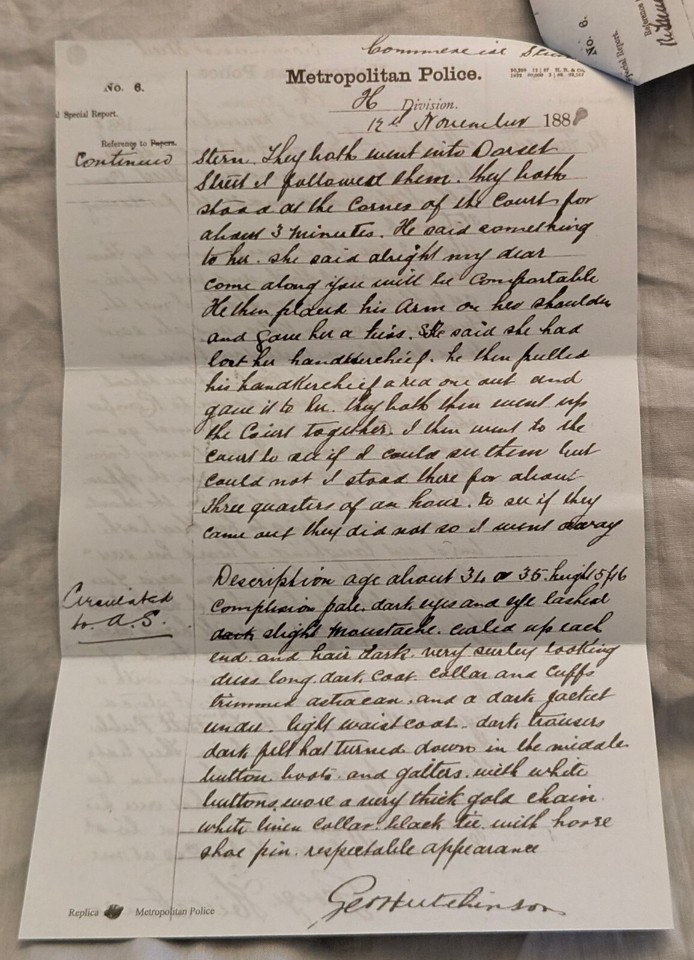 Commercial Street
No. 6.
Metropolitan Police.
No. 6.
Special Report.
H Division.
Special Report.
12th November 188
Reference to Papers.
Continued
Stern. They both went into Dorset
Street I followed them. they both
stood at the corner of the Court for
about 3 minutes. He said something
to her. she said alright my dear
come along you will be Comfortable
He then placed his Arm on her shoulder
and gave her a kiss. She said she had
lost her handkerchief. he then pulled
his handkerchief a red one out and
gave it to her. they both then went up
the Court together. I then went to the
court to see if I could see them but
could not I stood there for about
three quarters of an hour. to see if they
came out they did not so I went away
Circulated
to A.S.
Description age about 34 or 35. height 5 ft 6
complexion pale. dark eyes and eye lashes
dark slight moustache. curled up each
end. and hair dark. very surley looking
dress long dark coat. collar and cuffs
trimmed astracan. and a dark jacket
under. light waistcoat. dark trousers
dark felt hat turned down in the middle
button boots. and gaiters. with white
buttons. wore a very thick gold chain
white linen collar. black tie. with horse
shoe pin. respectable appearance
Geo Hutchinson
Replica Metropolitan Police